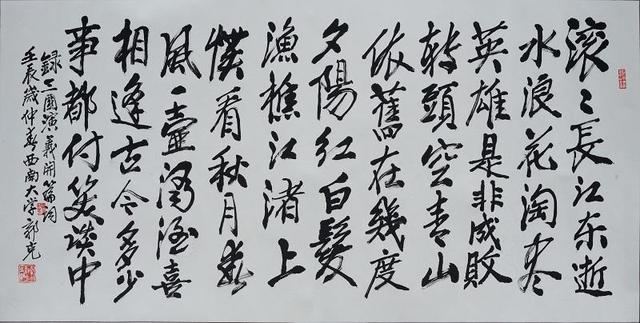 滚〻長江东逝
水浪花淘尽
英雄是非成敗
转頭空青山
依舊在幾度
夕陽红白髮
漁樵江渚上
慣看秋月春
風一壺濁酒喜
相逢古今多少
事都付笑谈中
録三國演義開篇词
壬辰歲仲春西南大学郭克